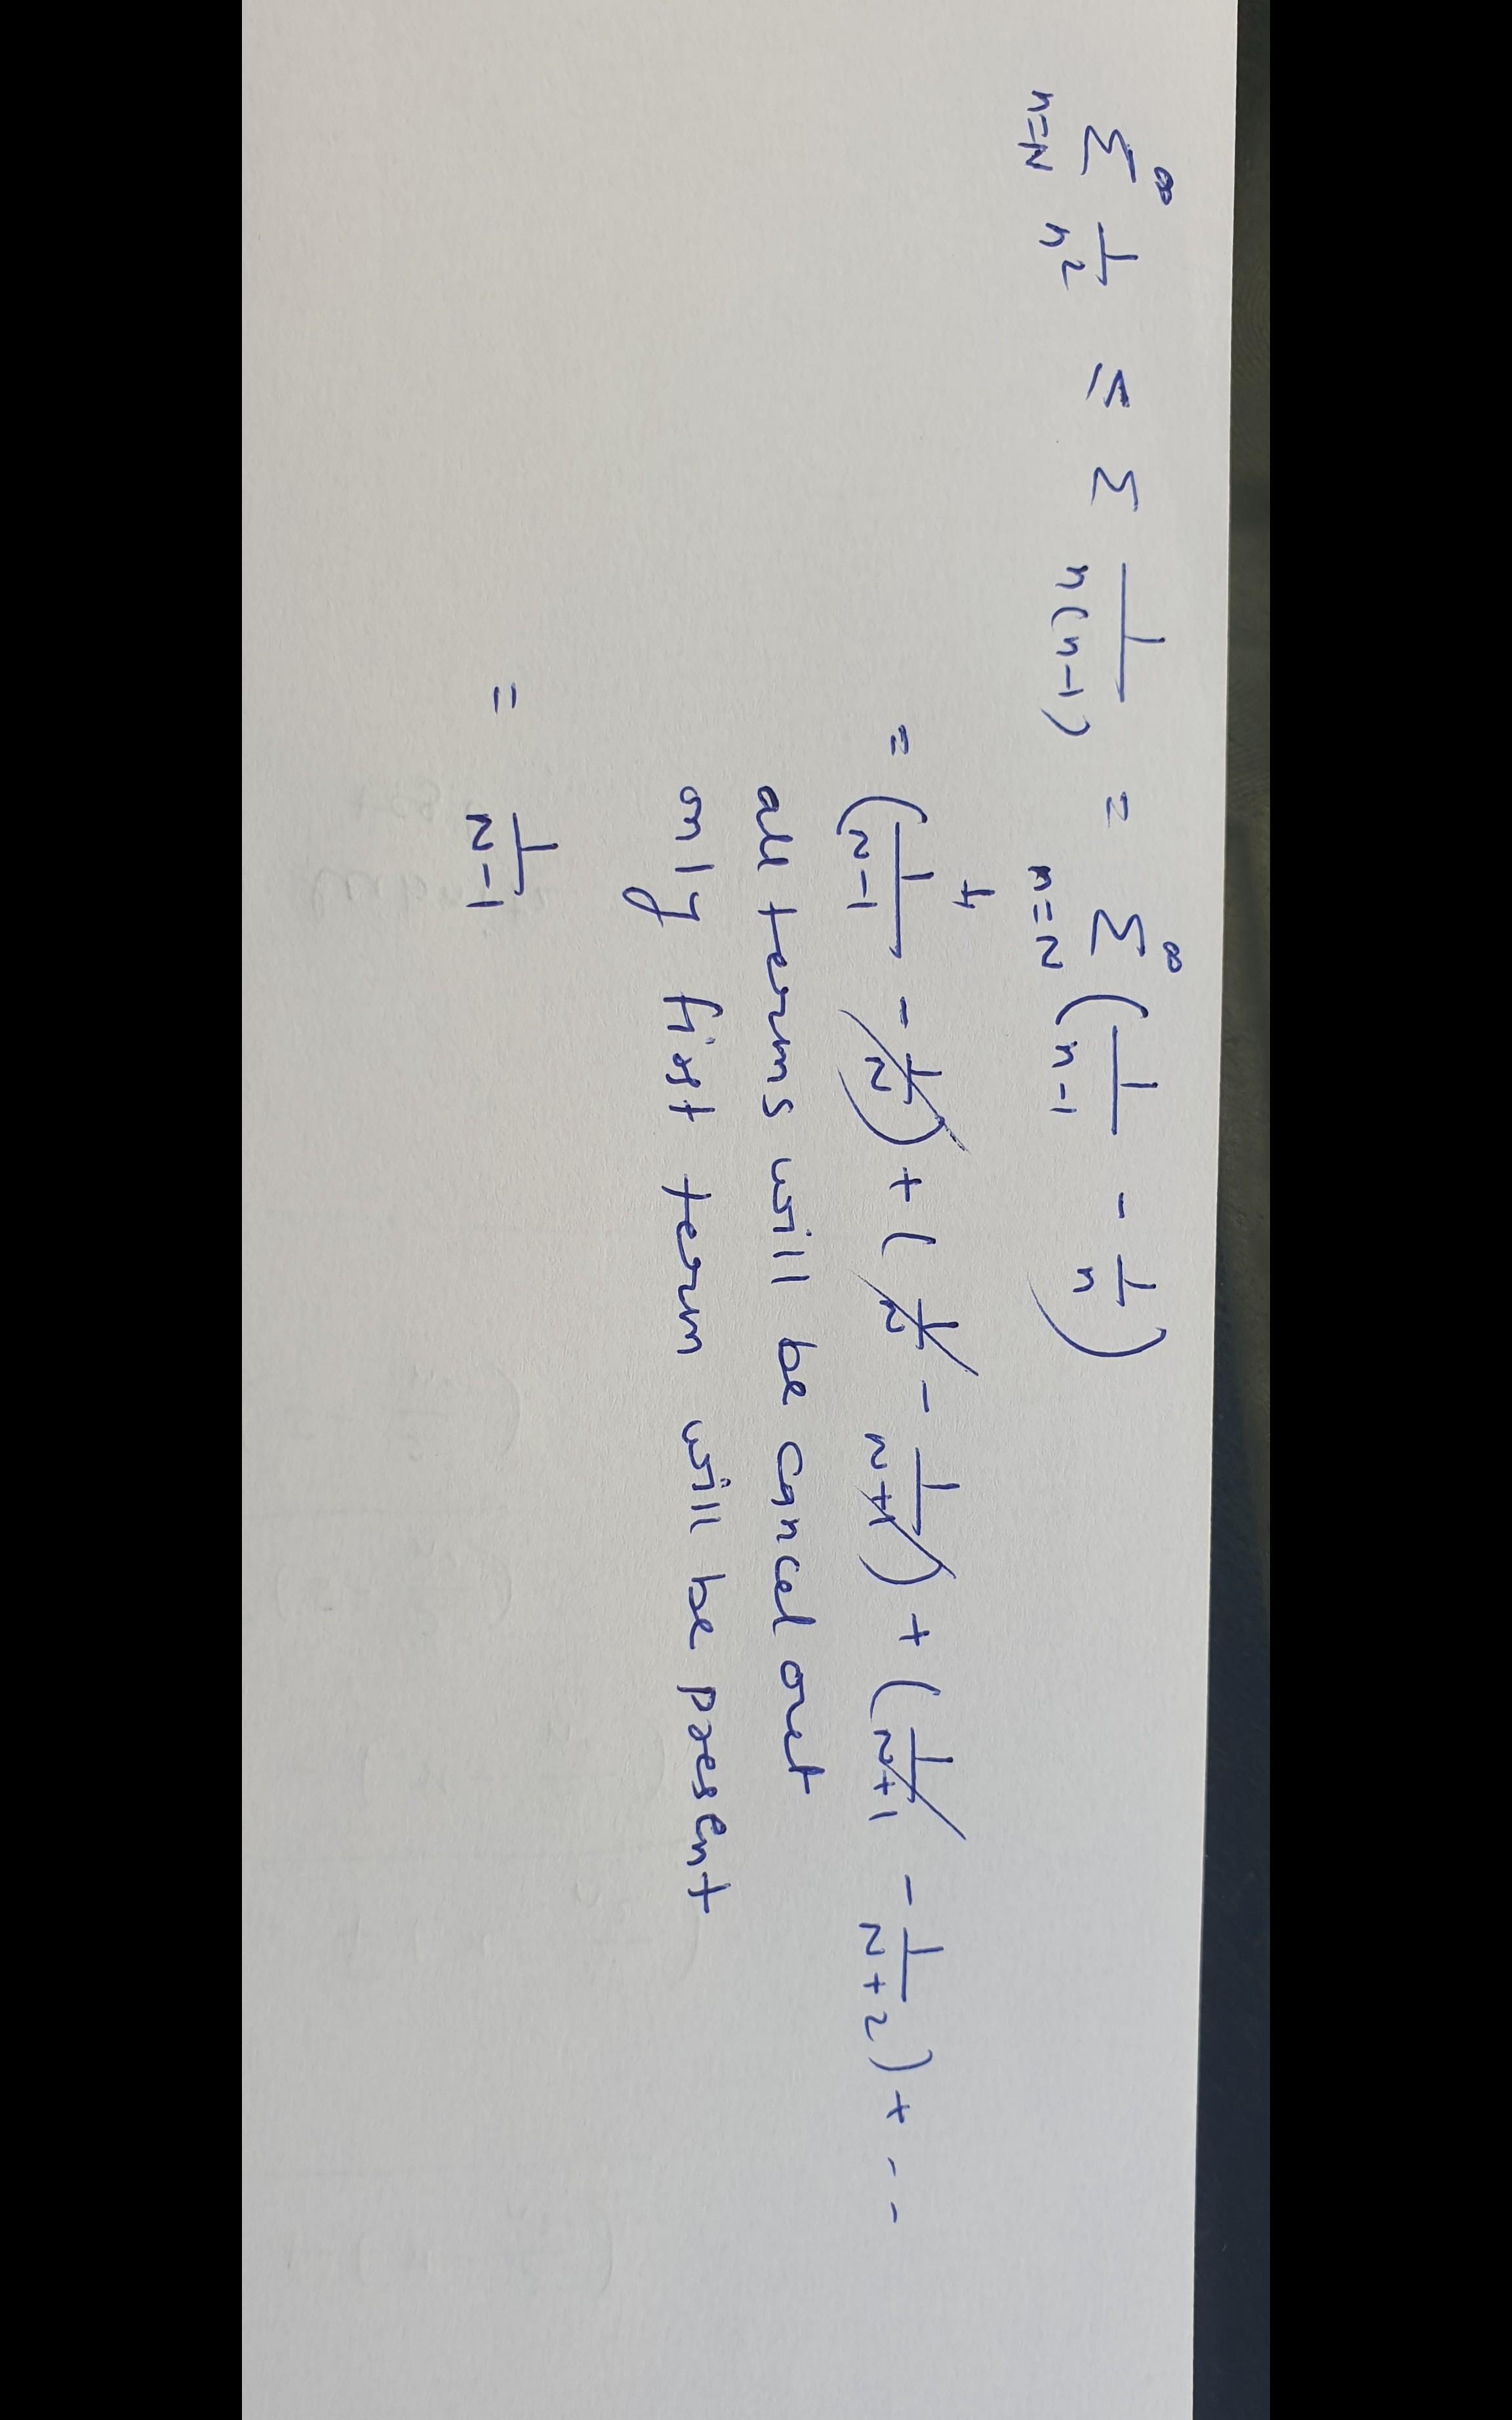 ∞ Σ n=N 1/n² ≤ Σ 1/n(n-1) = ∞ Σ n=N (1/n-1 - 1/n)
= (1/N-1 - 1/N) + (1/N - 1/N+1) + (1/N+1 - 1/N+2) + ---
all terms will be cancel out
only first term will be present
= 1/N-1